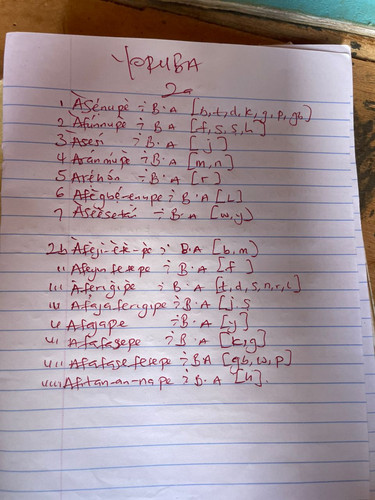 YORUBA
2a
1 Àsénupè ÷ B.A [b, t, d, k, g, p, gb]
2 Àfúnnupè ÷ B.A [f, s, ṣ, h]
3 Àsesí ÷ B.A [j]
4 Àránmúpè ÷ B.A [m, n]
5 Àréhón ÷ B.A [r]
6 Àfègbé-enupe ÷ B.A [L]
7 Àséèsetán ÷ B.A [w, y]
2b Afeji-ètè-pe ÷ B.A [b, m]
ii Afeyinfetepe ÷ B.A [f]
iii Aferigipe ÷ B.A [t, d, s, n, r, l]
iv Afajaferigipe ÷ B.A [j, ṣ
v Afajape ÷ B.A [y]
vi Afafasepe ÷ B.A [k, g]
vii Afafasefetepe ÷ BA [gb, w, p]
viii Afitan-an-nape ÷ B.A [h].